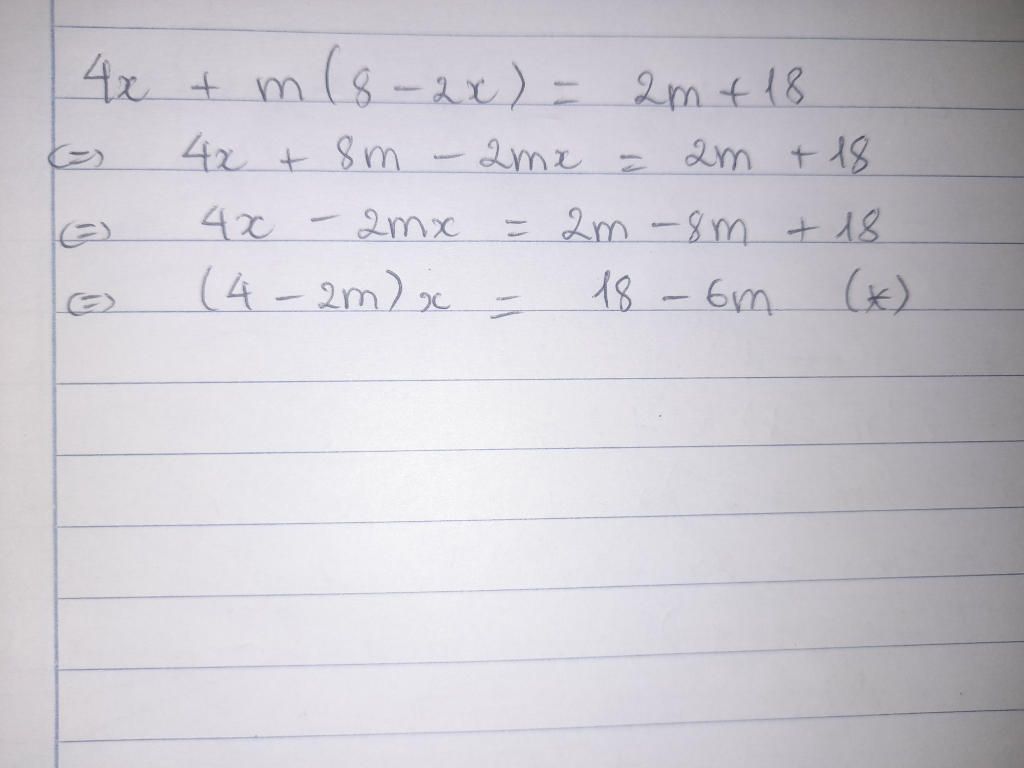 4x + m(8 - 2x) = 2m + 18
<=> 4x + 8m - 2mx = 2m + 18
<=> 4x - 2mx = 2m - 8m + 18
<=> (4 - 2m)x = 18 - 6m (*)